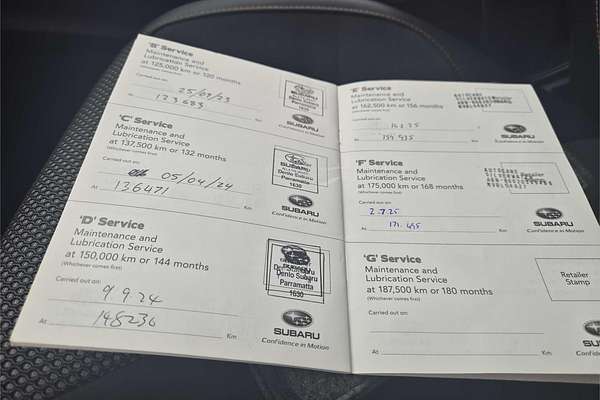 'B' Service
Maintenance and
Lubrication Service
at 125,000 km or 120 months
(Whichever comes first)
Carried out on:
25/09/23
At 123683
Denlo Subaru
Parramatta
SUBARU
Confidence in Motion
'C' Service
Maintenance and
Lubrication Service
at 137,500 km or 132 months
(Whichever comes first)
Carried out on:
05/04/24
At 136471 Km
Denlo Subaru
Parramatta
1630
SUBARU
Confidence in Motion
'D' Service
Maintenance and
Lubrication Service
at 150,000 km or 144 months
(Whichever comes first)
Carried out on:
9 9 24
At 148236 Km
Denlo Subaru
Parramatta
1630
SUBARU
Confidence in Motion
'E' Service
Maintenance and
Lubrication Service
at 162,500 km or 156 months
(Whichever comes first)
Carried out on:
At Km
SUBARU
Confidence in Motion
'F' Service
Maintenance and
Lubrication Service
at 175,000 km or 168 months
(Whichever comes first)
Carried out on:
2.7.25
At 171.495 Km
Retailer
SUBARU
Confidence in Motion
'G' Service
Maintenance and
Lubrication Service
at 187,500 km or 180 months
(Whichever comes first)
Carried out on:
At Km
Retailer
Stamp